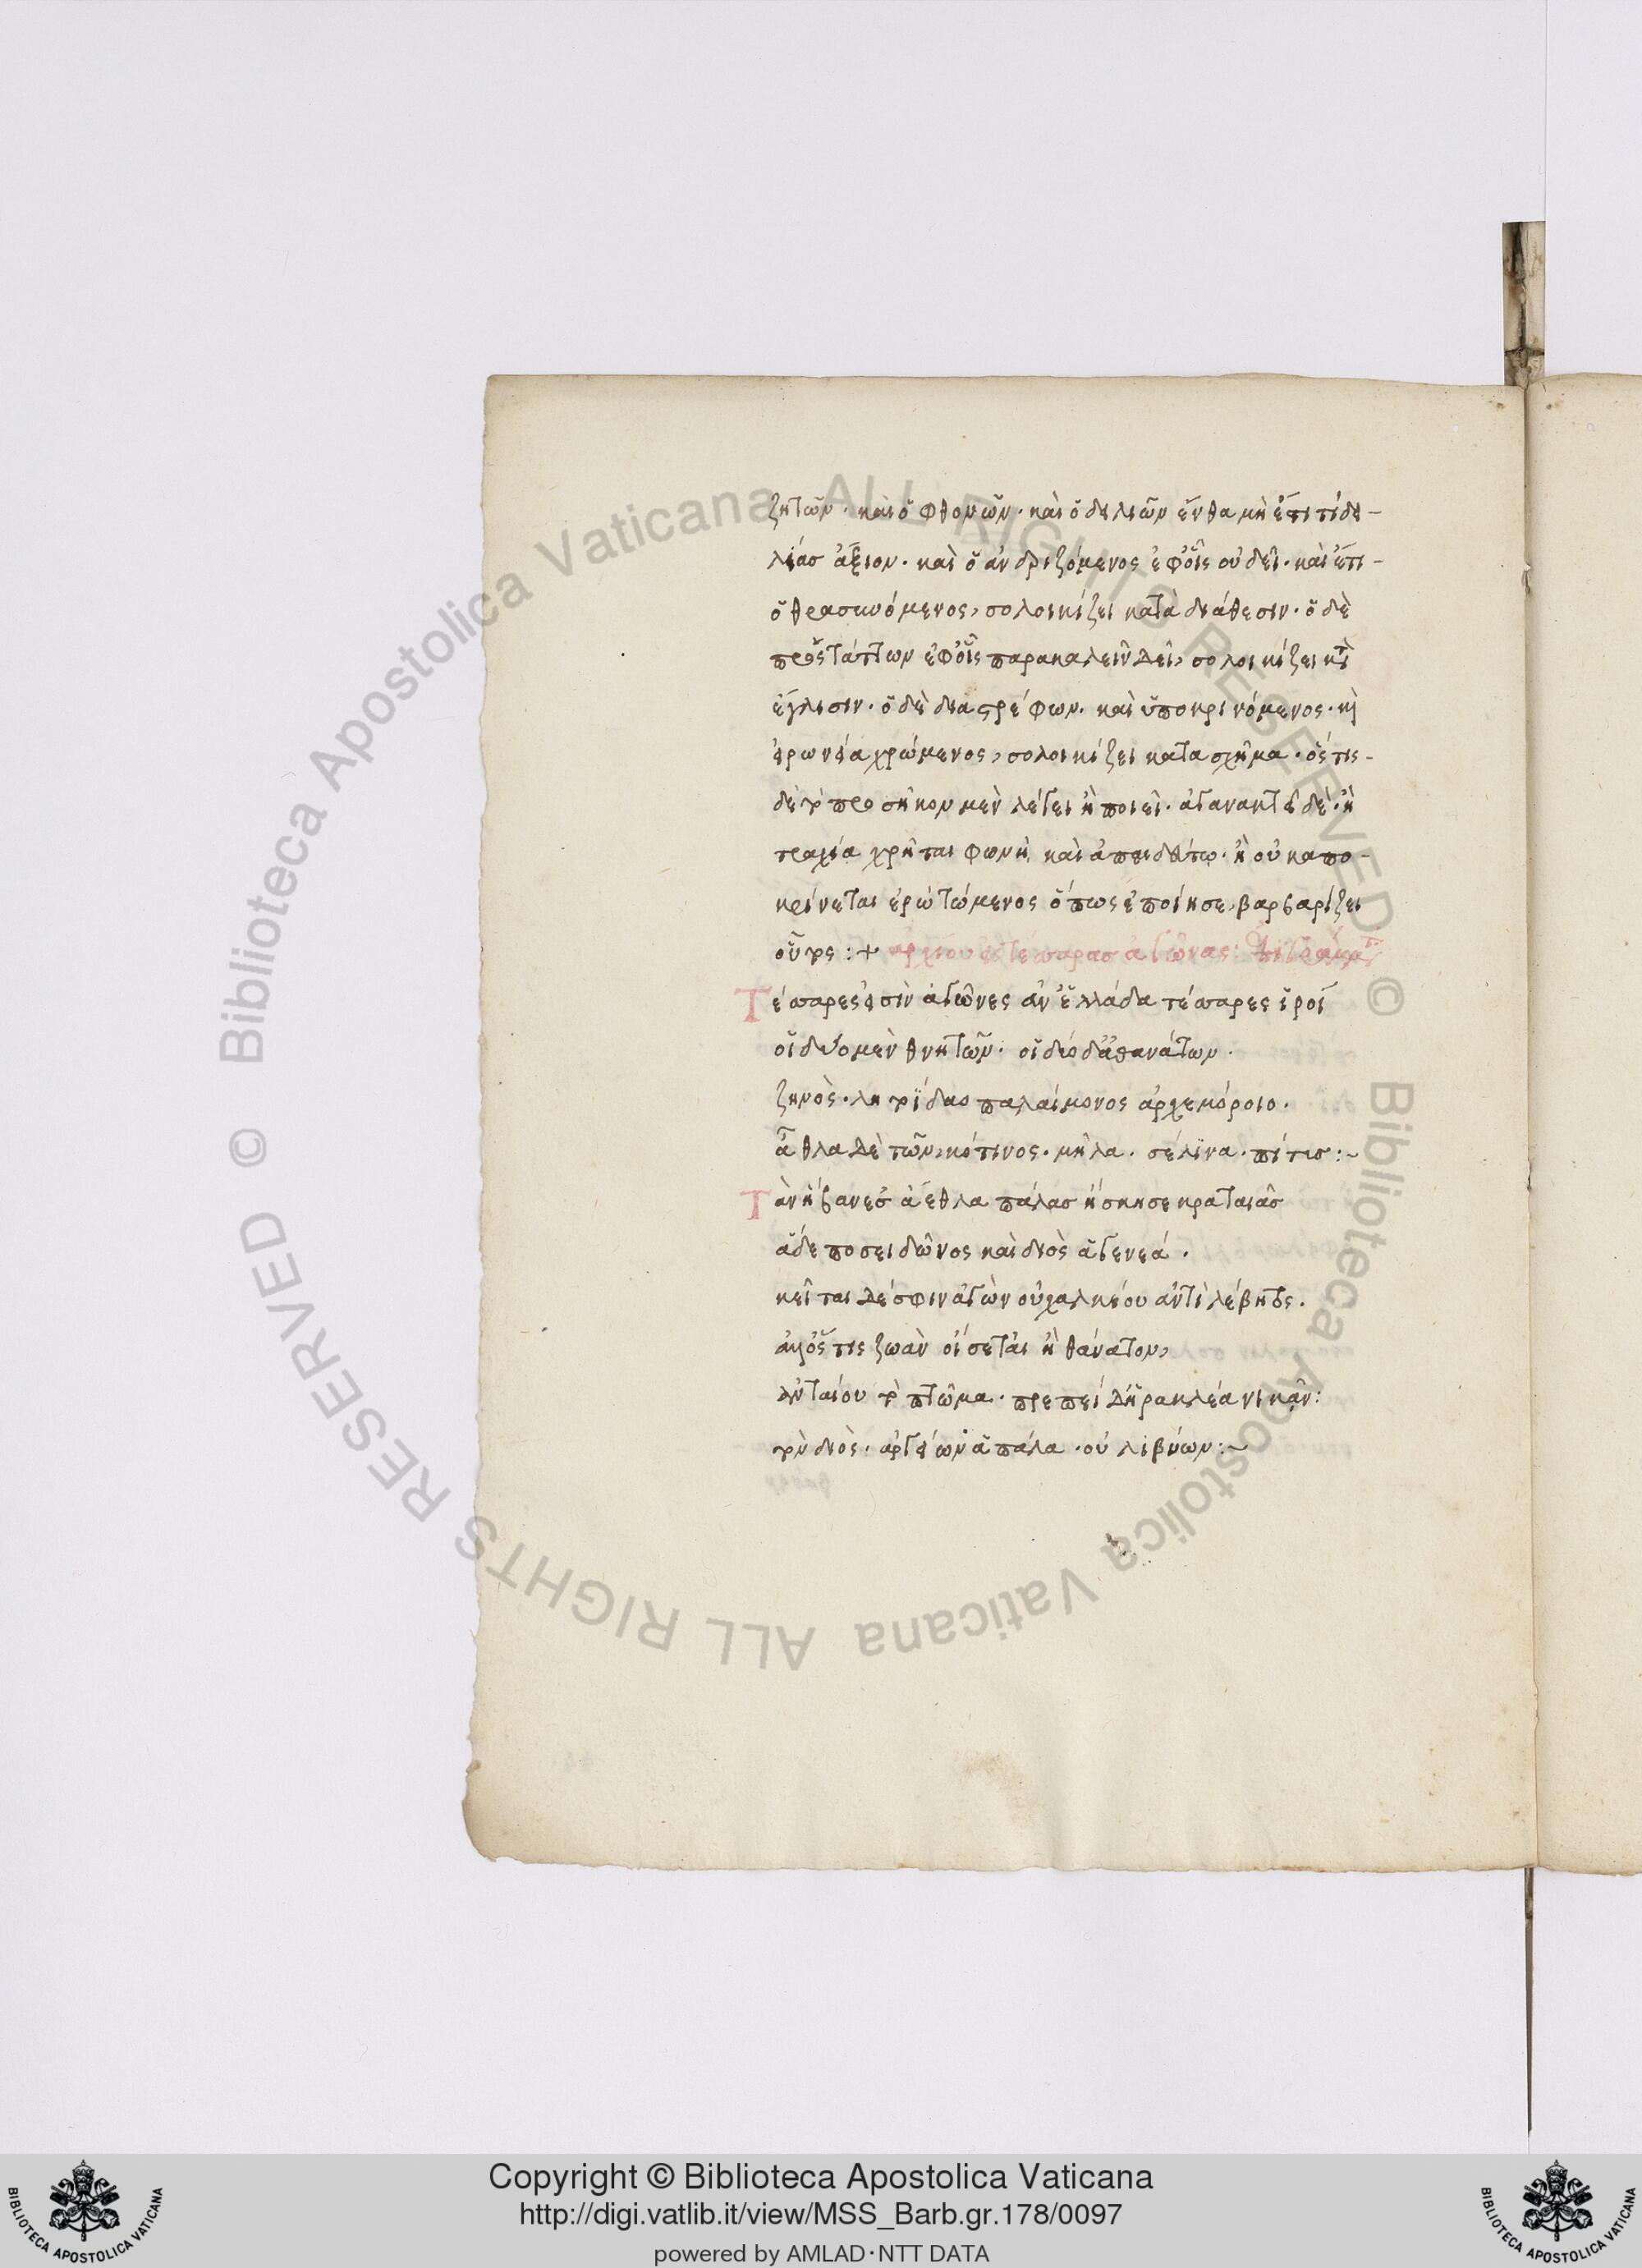 ζητῶν· καὶ ὁ φθονῶν· καὶ ὁ δειλιῶν ἔνθα μὴ ἐπιτίδει-
λίας ἄξιον· καὶ ὁ ἀνδριζόμενος ἐφ' οἷς οὐ δεῖ· καὶ ἐπι-
ὁ θρασυνόμενος, σολοικίζει κατὰ διάθεσιν· ὁ δὲ
προστάττων ἐφ' οἷς παρακαλεῖν δεῖ, σολοικίζει κατὰ
ἔγλισιν· ὁ δὲ διαστρέφων· καὶ ὑποκρινόμενος· καὶ
εἰρωνεία χρώμενος, σολοικίζει κατα σχῆμα· ὅστις-
δὲ τὸ προσῆκον μὲν λέγει ἢ ποιεῖ· ἀγανακτεῖ δέ· ἢ
τραχεία χρῆται φωνῆ καὶ ἀπειδεύτω· ἢ οὐκ απο-
κρίνεται ἐρωτώμενος ὅπως ἐποίησε, βαρβαρίζει
οὗτος :+ αρχίου εἰς τέσσαρας ἀγῶνας: ἐπίγραμμα
Τέσσαρες εἰσὶν ἀγῶνες ἀν' ἑλλάδα τέσσαρες ἱροί
οἱ δύο μὲν θνητῶν· οἱ δύο δ' ἀθανάτων·
ζηνὸς· λητοΐδαο παλαίμονος ἀρχεμόροιο·
ἆθλα δὲ τῶν, κότινος· μῆλα· σέλινα· πίτυσ:~
Τὰν ἥβαν ες ἄεθλα πάλας ἤσκησε κραταιᾶς
ἅδε ποσειδῶνος καὶ διὸς ἁ γενεά·
κεῖται δέ σφιν ἀγὼν οὐ χαλκέου ἀντὶ λέβητος·
ἀλλ' ὅστις ζωὰν οἴσεται ἢ θάνατον,
ἀνταίου τὸ πτῶμα· πρεπεί δ' ἡρακλέα νικᾶν:
τὸν διὸς· ἀργείων ἁ πάλα· οὐ λιβύων:~
Copyright © Biblioteca Apostolica Vaticana
http://digi.vatlib.it/view/MSS_Barb.gr.178/0097
powered by AMLAD·NTT DATA
BIBLIOTECA APOSTOLICA VATICANA
BIBLIOTECA APOSTOLICA VATICANA
© Biblioteca Apostolica Vaticana ALL RIGHTS RESERVED
© Biblioteca Apostolica Vaticana ALL RIGHTS RESERVED